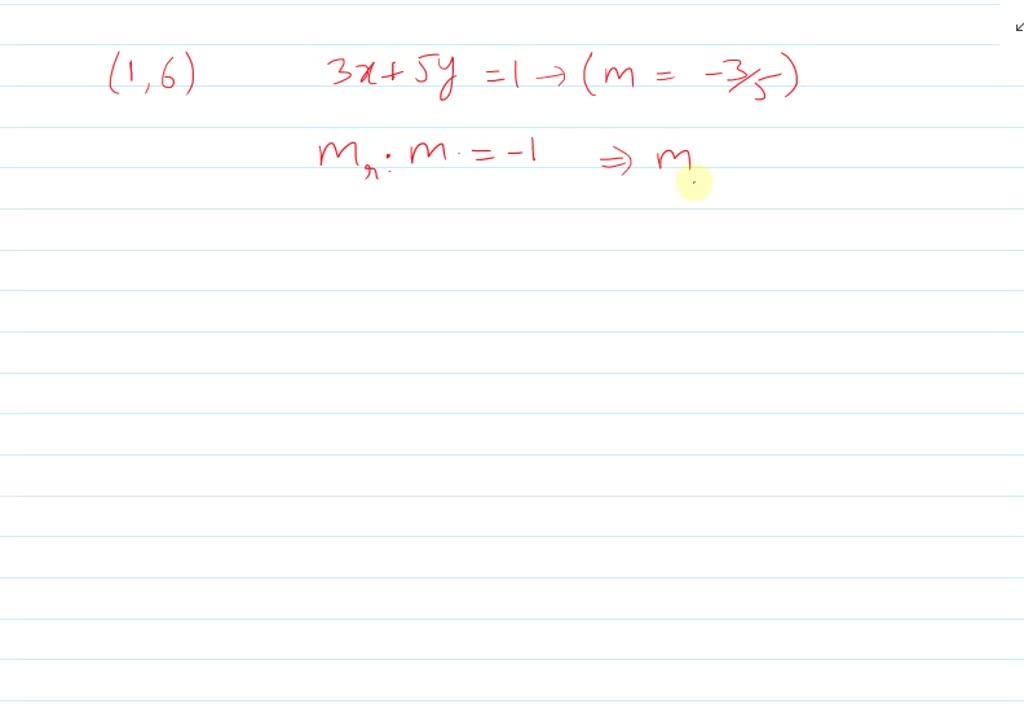 (1,6) 3x+5y =1 → (m = -3/5)
m_r · m = -1 ⇒ m